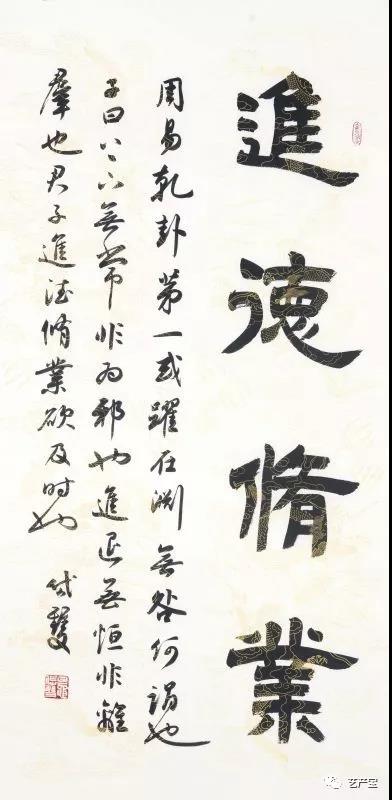 進德脩業
周易乾卦第一或躍在淵無咎何謂也
子曰上下無常非為邪也進退無恒非離
羣也君子進德脩業欲及时也
艺产宝